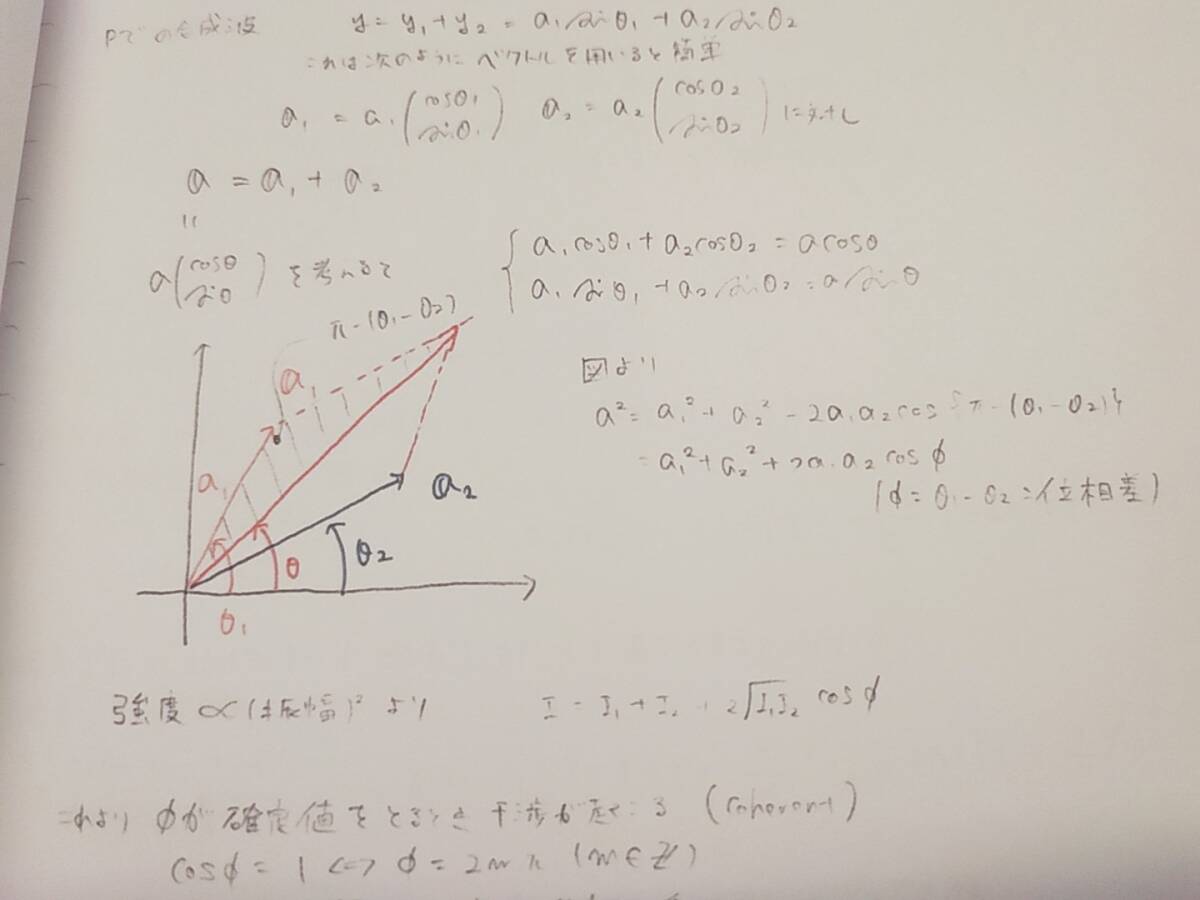 Pでの合成波 y = y₁ + y₂ = a₁ sinθ₁ + a₂ sinθ₂
これは次のようにベクトルを用いると簡単
a₁ = a₁(cosθ₁ sinθ₁) a₂ = a₂(cosθ₂ sinθ₂) に対し
a = a₁ + a₂
||
a(cosθ sinθ) を考えると
{ a₁cosθ₁ + a₂cosθ₂ = acosθ
a₁ sinθ₁ + a₂ sinθ₂ = a sinθ
π - (θ₁ - θ₂)
a₁
a₁
a₂
θ₂
θ
θ₁
図より
a² = a₁² + a₂² - 2a₁a₂cos{π - (θ₁ - θ₂)}
= a₁² + a₂² + 2a₁a₂ cosφ
(φ = θ₁ - θ₂ : 位相差)
強度 ∝ (振幅)² より I = I₁ + I₂ + 2√I₁I₂ cosφ
これより φが確定値をとるとき干渉が起こる (coherent)
cosφ = 1 <=> φ = 2mπ (m∈Z)